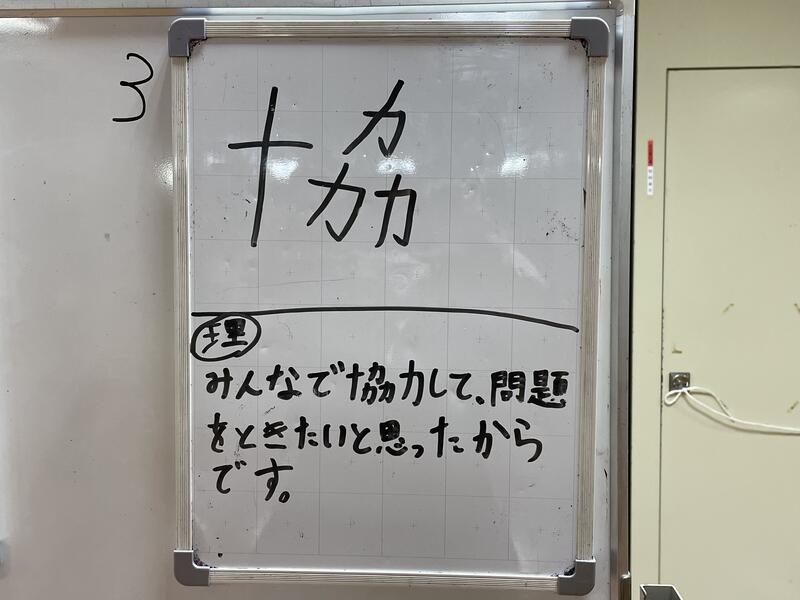 3
協
理
みんなで協力して、問題
をときたいと思ったから
です。